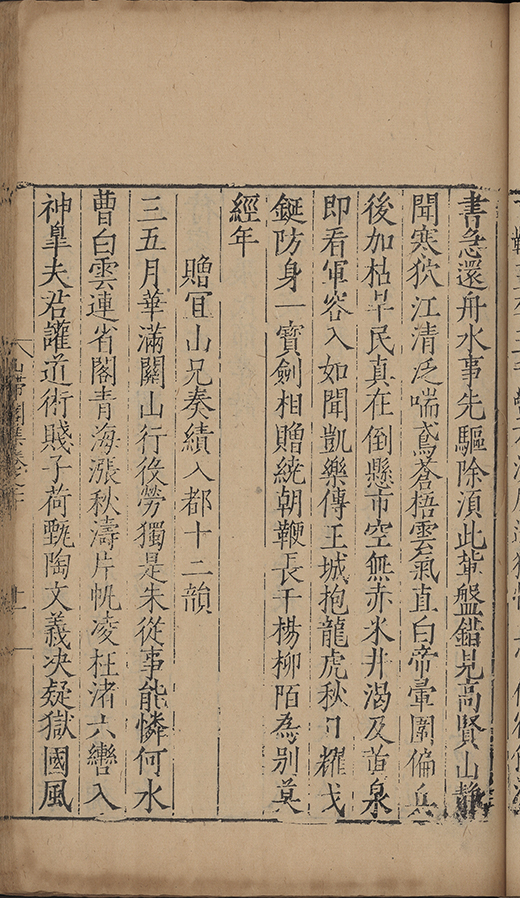 書急還舟水事先驅除湏此軰盤錯見高賢山靜
聞寒狖江清泛喘鳶蒼梧雲氣直白帝暈圍偏兵
後加枯旱民真在倒懸市空無赤米井渴及黃泉
即看軍容入如聞凱樂傳王城抱龍虎秋日耀戈
鋋防身一寶劍相贈繞朝鞭長干楊柳陌為別莫
經年
贈宜山兄奏績入都十二韻
三五月華滿關山行役勞獨是朱從事能憐何水
曹白雲連省閣青海漲秋濤片帆凌枉渚六轡入
神皐夫君讙道術賤子荷甄陶文義决疑獄國風